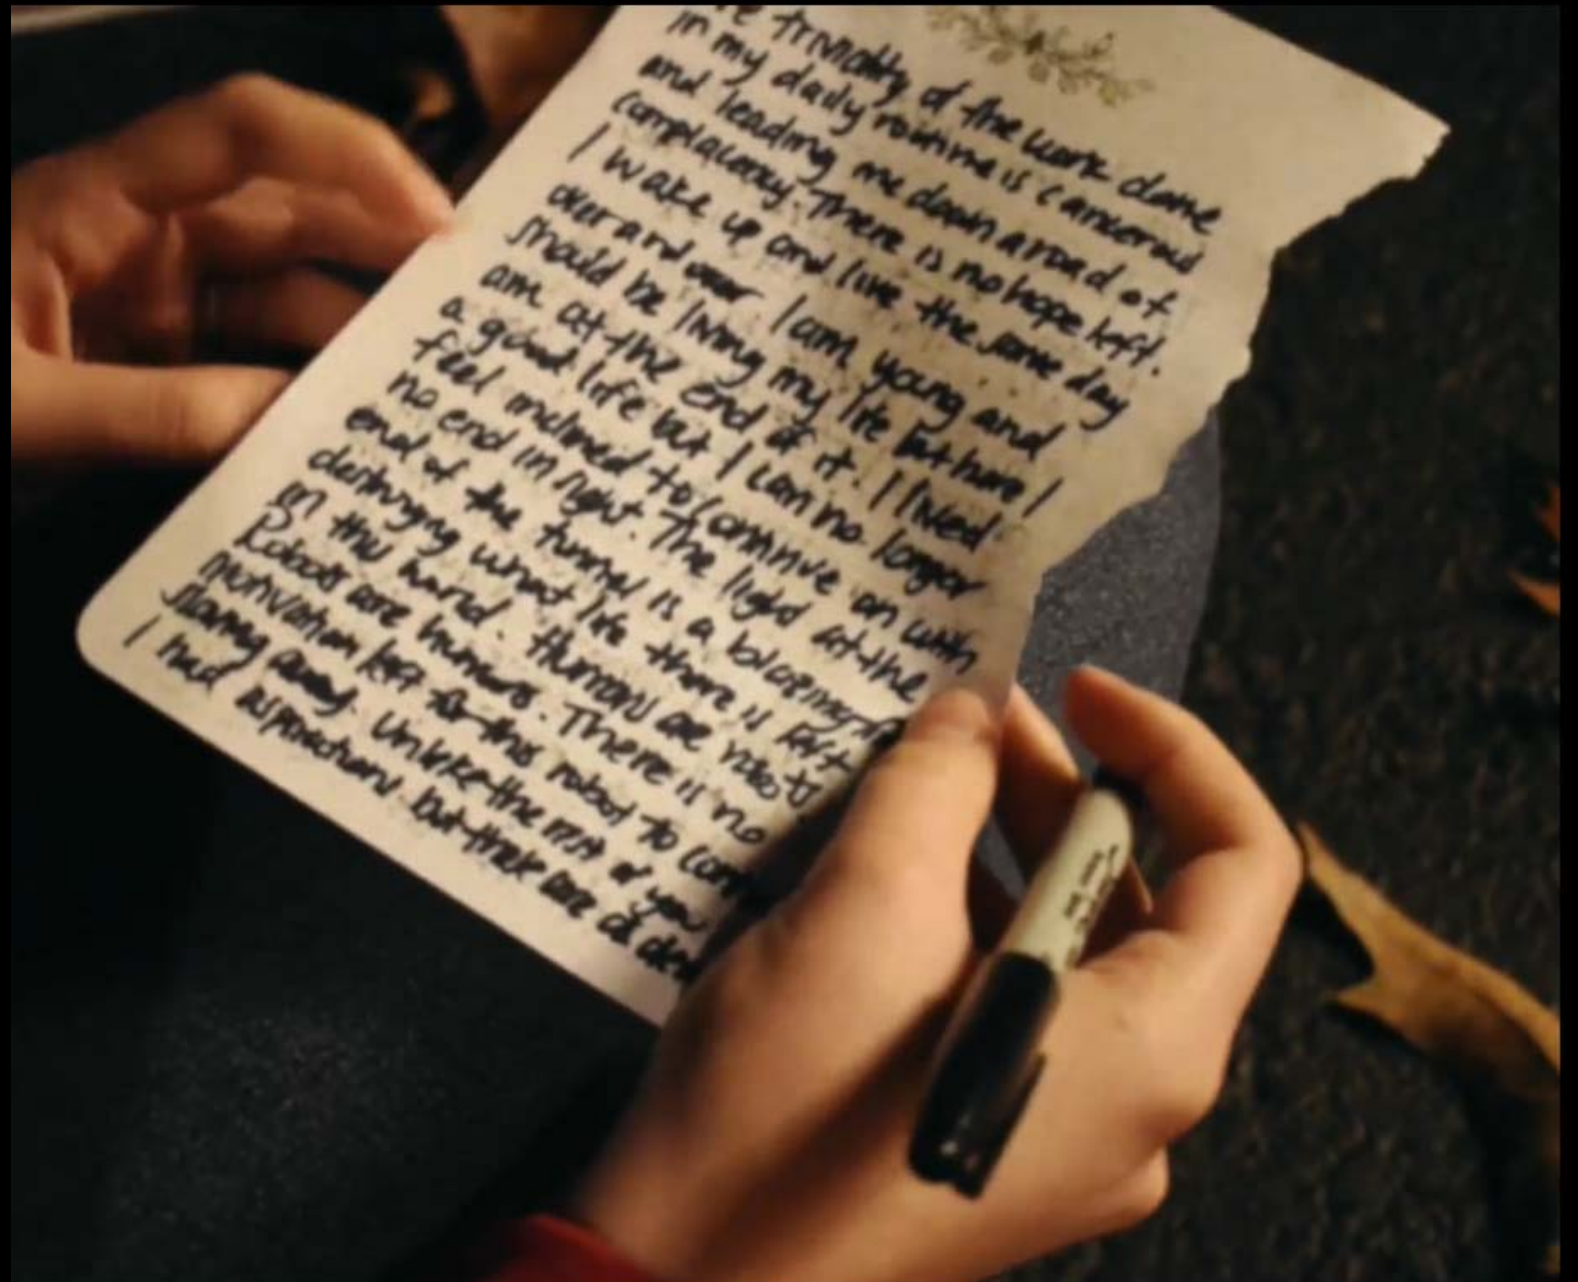 triviality of the work done
in my daily routine is cancerous
and leading me down a road of
complacency. There is no hope left.
I wake up and live the same day
over and over. I am young and
should be living my life but here I
am at the end of it. I lived
a good life but I can no longer
feel inclined to continue on with
no end in sight. The light at the
end of the tunnel is a blazing
destroying what life there is left
in this world. Humans are robots
Robots are humans. There is no
motivation left for this robot to
slaving away. Unlike the rest of you
I had aspirations but these are